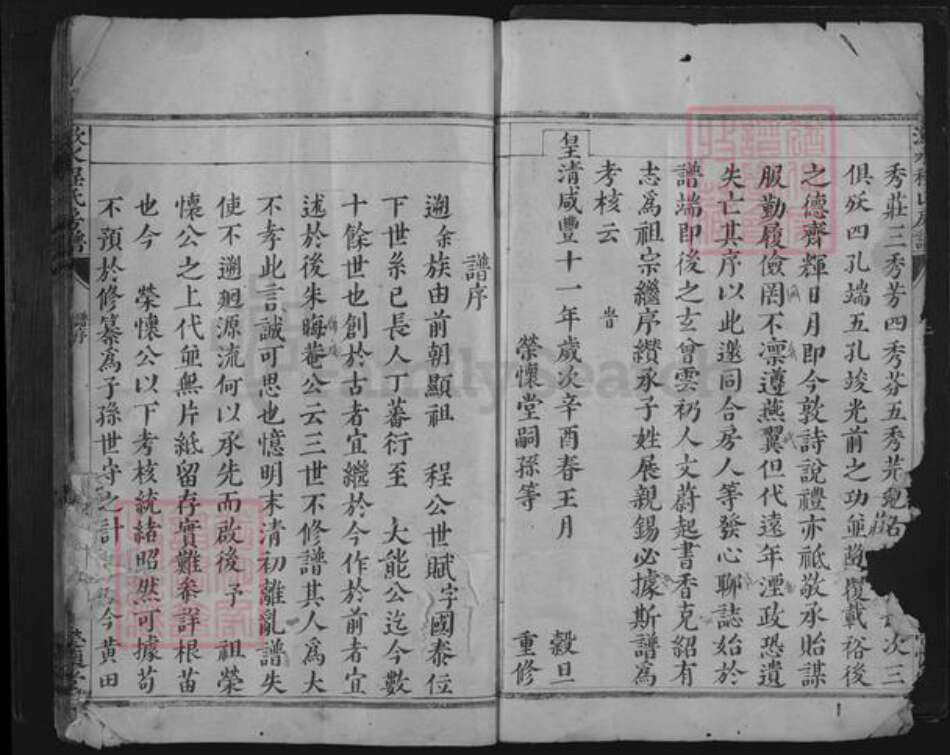 秀莊三秀芳四秀芬五秀芹
次三
俱殀四孔端五孔竣光前之功並蓋覆載裕後
之德齊輝日月即今敦詩說禮亦祗敬承貽謀
服勤履儉罔不凛遵燕翼但代遠年湮政恐遺
失亡其序以此邀同合房人等發心聊誌始於
譜端即後之玄曾雲礽人文蔚起書香克紹有
志爲祖宗繼序纘承子姓展親錫必據斯譜爲
考核云 旹
皇清咸豐十一年歲次辛酉春王月 穀旦
榮懷堂嗣孫等 重修
譜序
遡余族由前朝顯祖 程公世賦字國泰位
下世系已長人丁蕃衍至 大能公迄今數
十餘世也創於古者宜繼於今作於前者宜
述於後朱晦菴公云三世不修譜其人爲大
不孝此言誠可思也憶明末清初離亂譜失
使不遡廻源流何以承先而啟後予 祖榮
懷公之上代並無片紙留存實難參詳根苗
也今 榮懷公以下考核統緒昭然可據苟
不預於修纂爲子孫世守之計 今黃田
譜序
FamilySearch